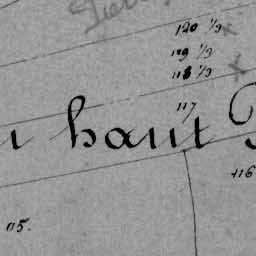 120 1/3
119 1/3
118 1/3
117
haut
116
115.